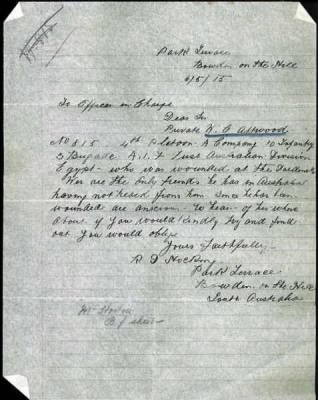 Park Terrace
Bowden on the Hill
6/5/15
To Officer in Charge
Dear Sir
Private W. C. Attwood
No 815 4th Platoon A Company 10 Infantry
3 Brigade A.I.F first Australian Division
Egypt who was wounded at the Dardanells
We are the only friends he has in Australia
having not heard from him since he has been
wounded are anxious to hear of his where
abouts if you would kindly try and find
out you would oblige
Yours Faithfully
R J Hocking
Park Terrace
Bowden on the Hill
South Australia